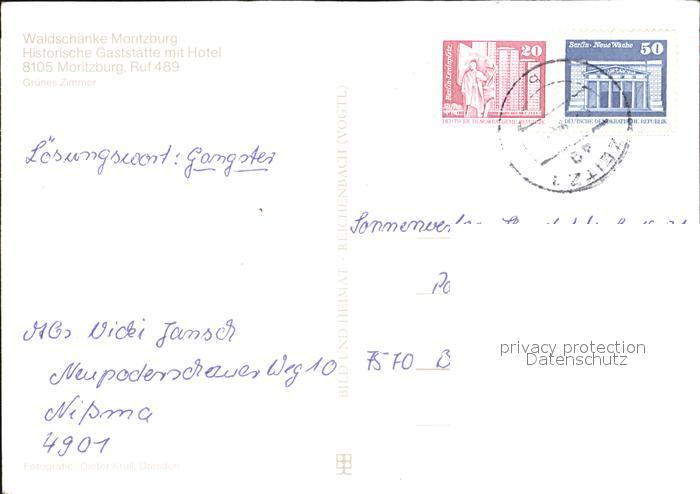 Waldschänke Moritzburg
Historische Gaststätte mit Hotel
8105 Moritzburg, Ruf 489
Grünes Zimmer
Berlin-Leninplatz 20
DEUTSCHE DEMOKRATISCHE REPUBLIK
Berlin · Neue Wache 50
DEUTSCHE DEMOKRATISCHE REPUBLIK
ZEITZ 1
49
Lösungswort: Gangster
BILD UND HEIMAT · REICHENBACH (VOGTL)
7570 B
privacy protection
Datenschutz
Abs Vicki Jansch
Neupoderschauer Weg 10
Nißma
4901
Fotografie: Dieter Krull, Dresden